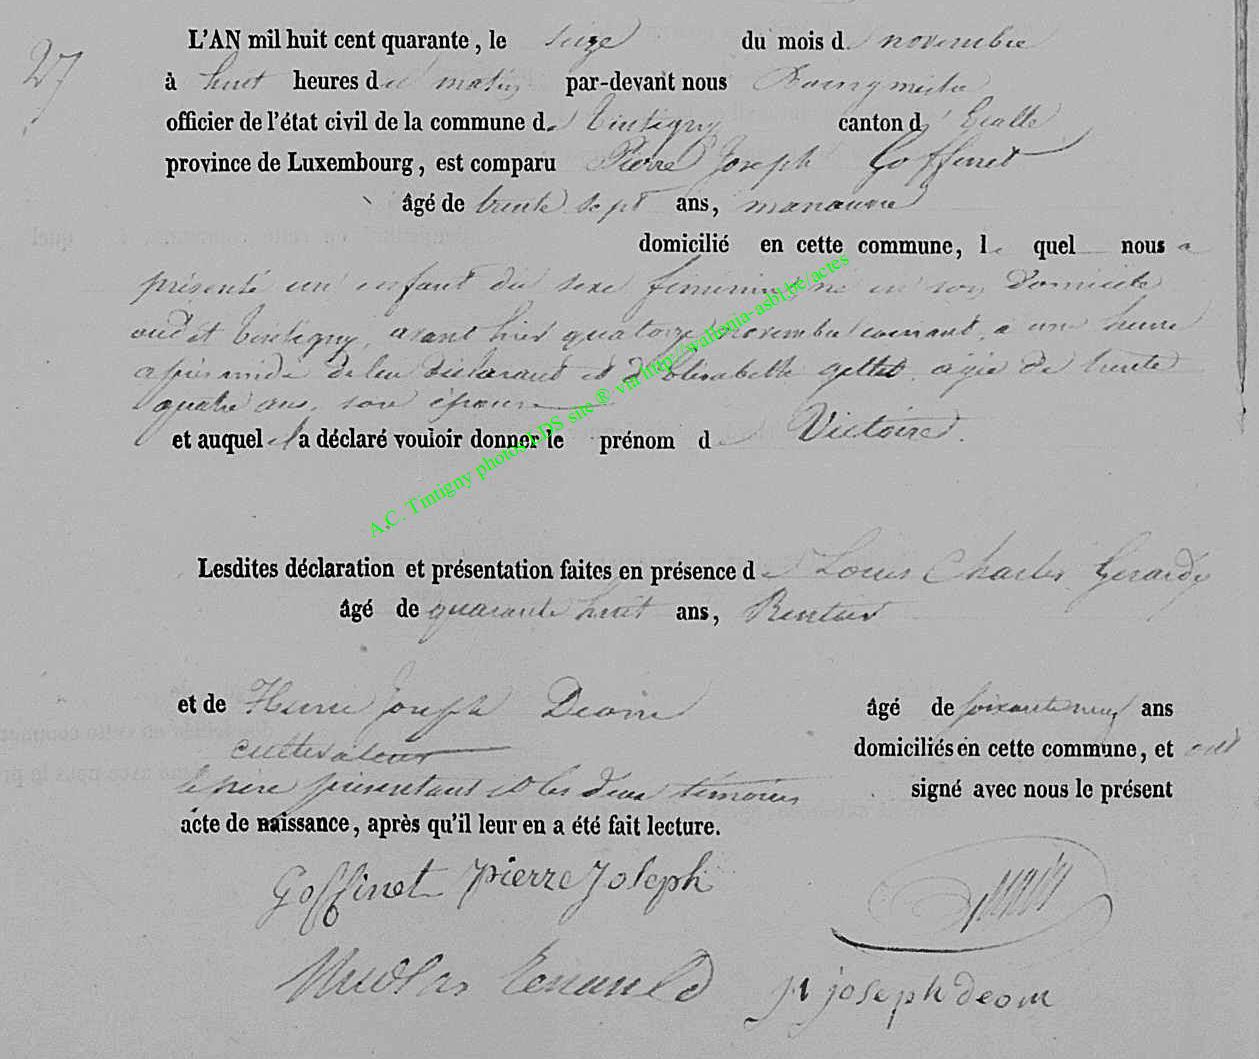 27
L'AN mil huit cent quarante, le seize du mois de novembre
à huit heures du matin par-devant nous Bourgmestre
officier de l'état civil de la commune de Tintigny canton d'Etalle
province de Luxembourg, est comparu Pierre Joseph Goffinet
âgé de trente sept ans, manœuvre
domicilié en cette commune, lequel nous a
présenté un enfant du sexe féminin né en son domicile
audit Tintigny, avant hier quatorze novembre courant, à une heure
après midi de lui déclarant et d'Elisabeth gettet âgée de trente
quatre ans, son épouse
et auquel il a déclaré vouloir donner le prénom de Victoire.
Lesdites déclaration et présentation faites en présence de Louis Charles Gerardy
âgé de quarante huit ans, Rentier
et de Henri Joseph Deom âgé de soixante neuf ans
cultivateur domiciliés en cette commune, et ont
le père présentant et les deux témoins signé avec nous le présent
acte de naissance, après qu'il leur en a été fait lecture.
Goffinet pierre Joseph
joseph deom
A.C. Tintigny photos LDS site ® via http://wallonia-asbl.be/actes